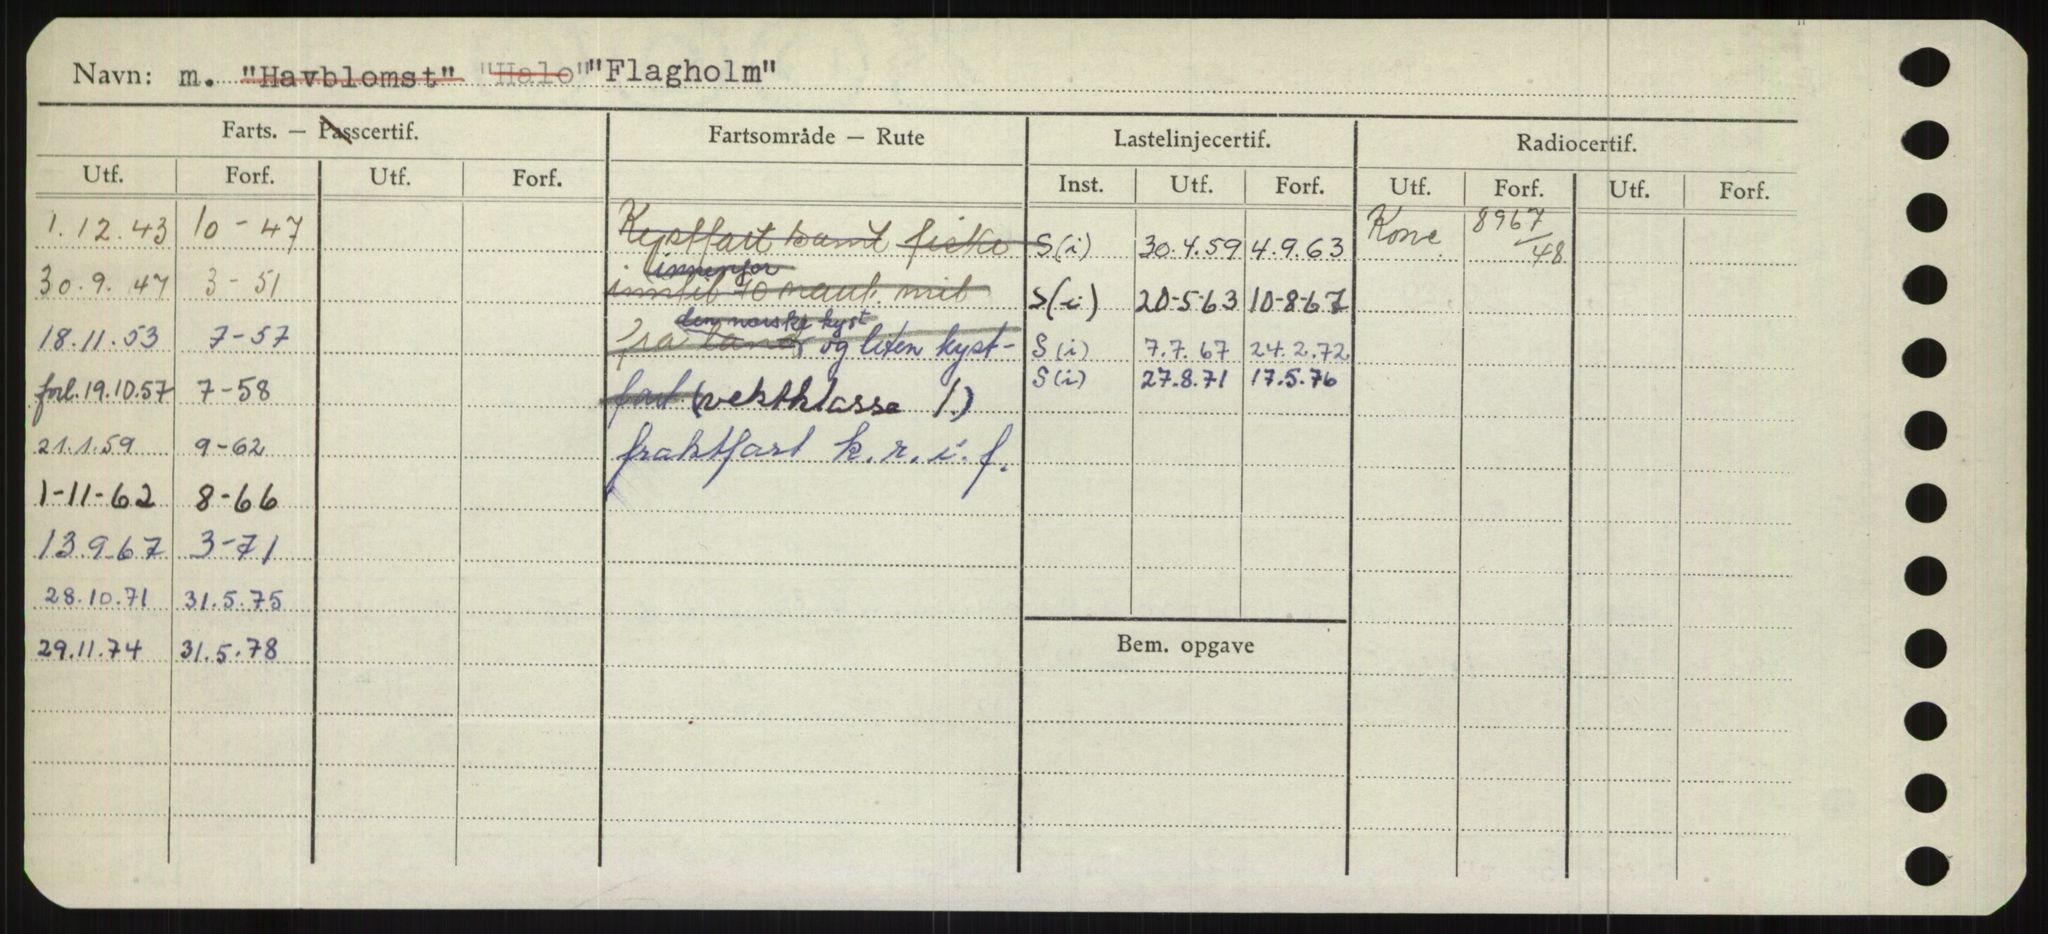 Navn: m. "Havblomst" "Halo" "Flagholm"
Farts. — Passcertif. Fartsområde — Rute Lastelinjecertif. Radiocertif.
Utf. Forf. Utf. Forf. Inst. Utf. Forf. Utf. Forf. Utf. Forf.
1.12.43 10-47 Kystfart samt fiske S(i) 30.4.59 4.9.63 Konv. 8967/48
innenfor
30.9.47 3-51 inntil 70 naut. mil S(i) 20-5-63 10-8-67
den norske kyst
18.11.53 7-57 fra land og liten kyst- S(i) 7.7.67 24.2.72
forl. 19.10.57 7-58 fart (vektklasse 1.) S(i) 27.8.71 17.5.76
21.1.59 9-62 fraktfart k.r.i.f.
1-11-62 8-66
13.9.67 3-71
28.10.71 31.5.75
29.11.74 31.5.78
Bem. opgave